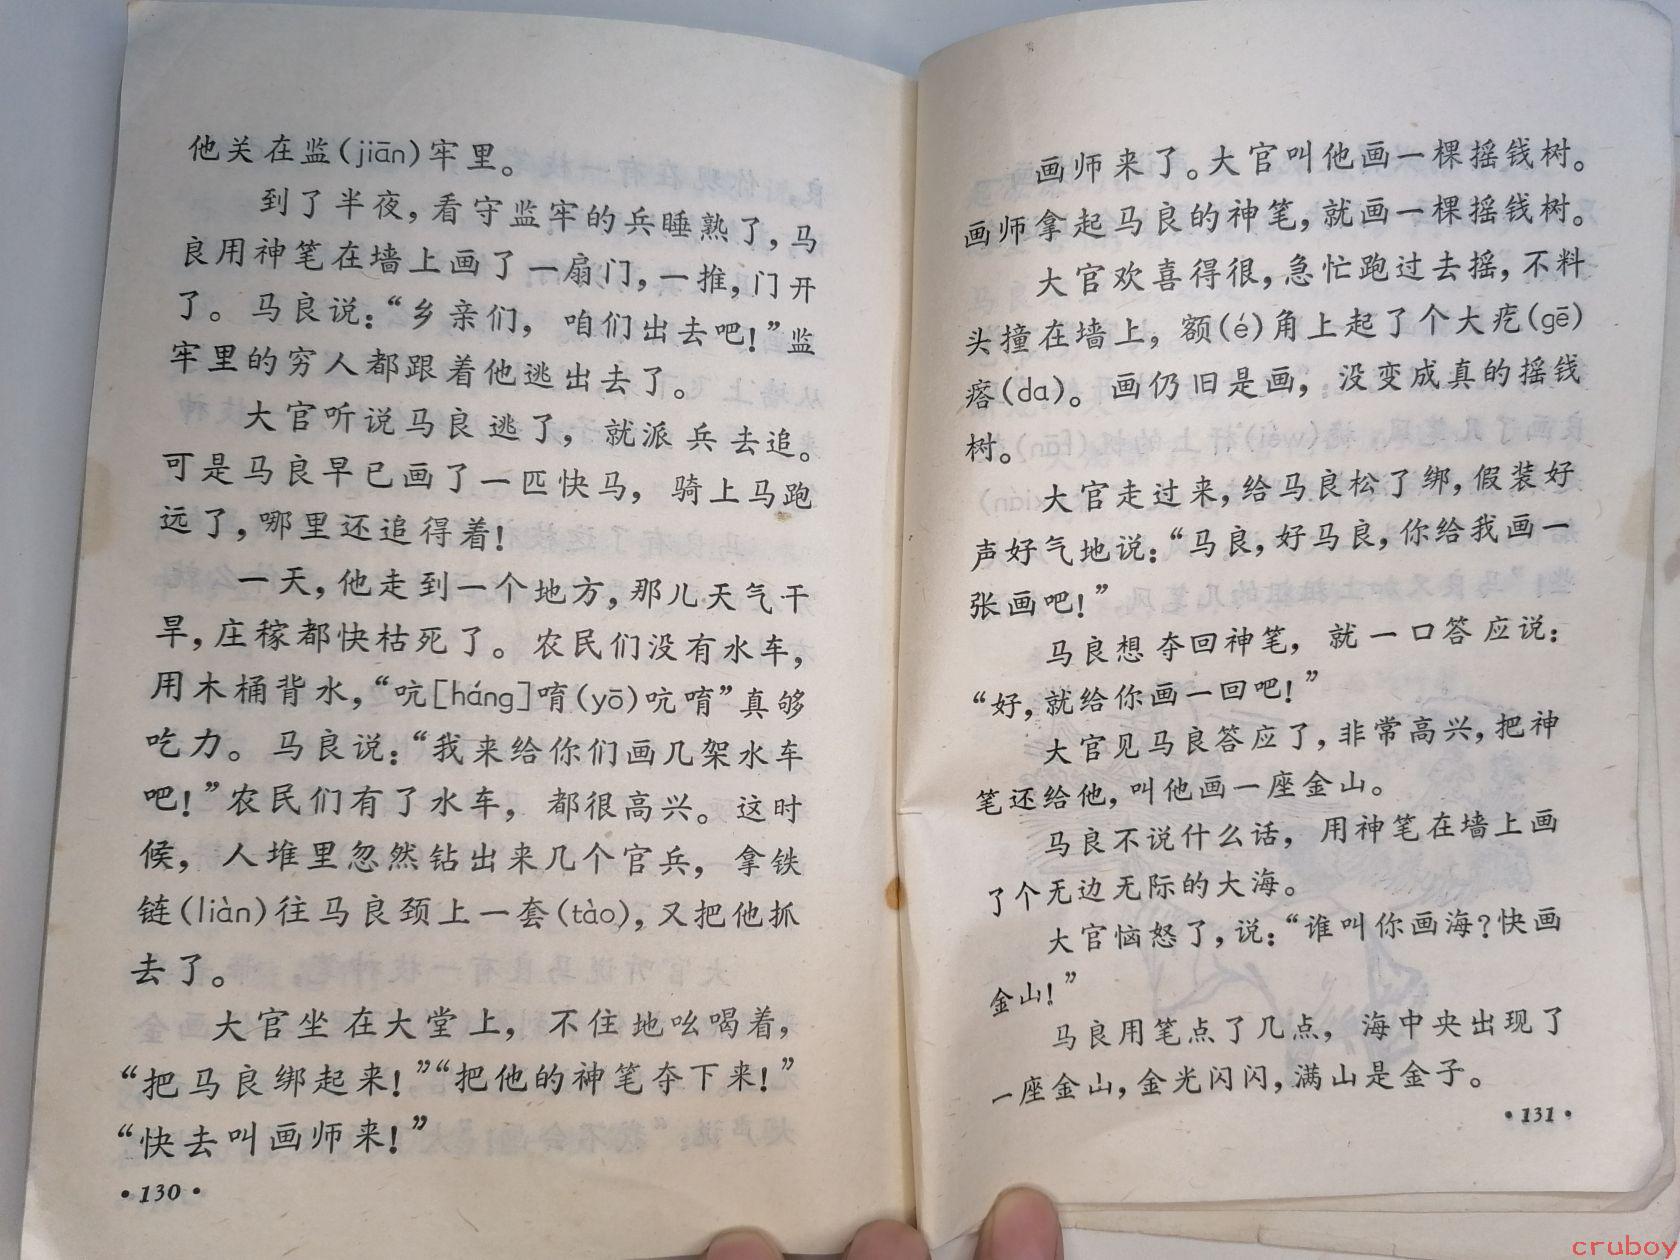 他关在监(jiān)牢里。
到了半夜，看守监牢的兵睡熟了，马
良用神笔在墙上画了一扇门，一推，门开
了。马良说：“乡亲们，咱们出去吧！”监
牢里的穷人都跟着他逃出去了。
大官听说马良逃了，就派兵去追。
可是马良早已画了一匹快马，骑上马跑
远了，哪里还追得着！
一天，他走到一个地方，那儿天气干
旱，庄稼都快枯死了。农民们没有水车，
用木桶背水，“吭[háng]唷(yō)吭唷”真够
吃力。马良说：“我来给你们画几架水车
吧！”农民们有了水车，都很高兴。这时
候，人堆里忽然钻出来几个官兵，拿铁
链(liàn)往马良颈上一套(tào)，又把他抓
去了。
大官坐在大堂上，不住地吆喝着，
“把马良绑起来！”“把他的神笔夺下来！”
“快去叫画师来！”
·130·
画师来了。大官叫他画一棵摇钱树。
画师拿起马良的神笔，就画一棵摇钱树。
大官欢喜得很，急忙跑过去摇，不料
头撞在墙上，额(é)角上起了个大疙(gē)
瘩(da)。画仍旧是画，没变成真的摇钱
树。
大官走过来，给马良松了绑，假装好
声好气地说：“马良，好马良，你给我画一
张画吧！”
马良想夺回神笔，就一口答应说：
“好，就给你画一回吧！”
大官见马良答应了，非常高兴，把神
笔还给他，叫他画一座金山。
马良不说什么话，用神笔在墙上画
了个无边无际的大海。
大官恼怒了，说：“谁叫你画海？快画
金山！”
马良用笔点了几点，海中央出现了
一座金山，金光闪闪，满山是金子。
·131·
cruboy